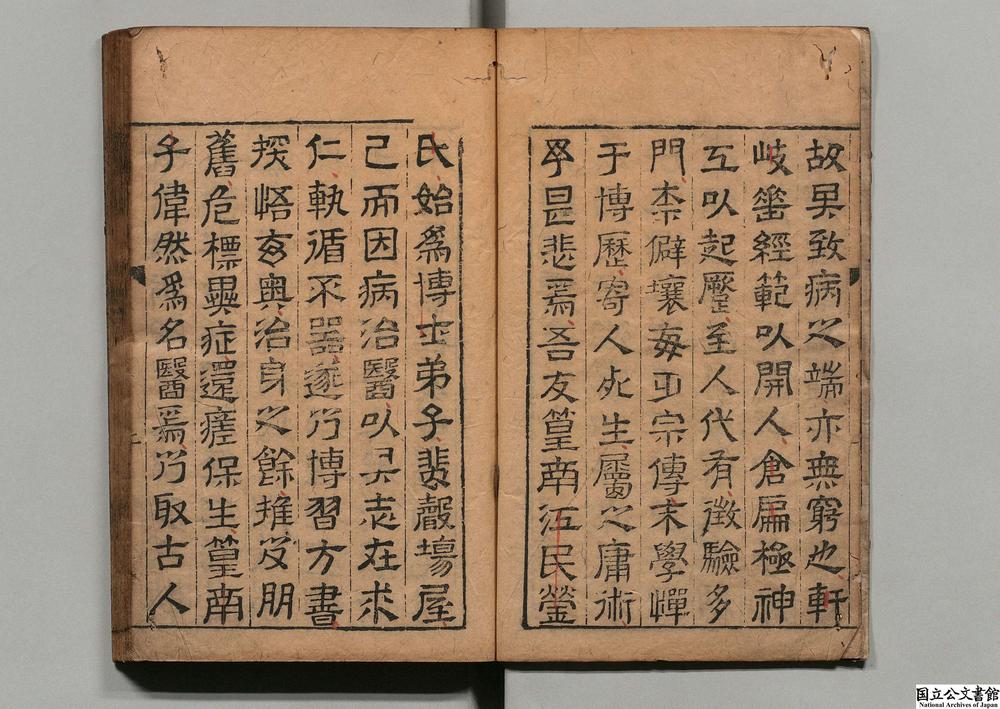 故其致病之端亦無窮也軒
岐畱經範以開人倉扁極神
工以起至人代有徵驗多
門柰僻壤每宗傳末學憚
于博歷寄人死生屬之庸術
是悲焉吾友篁南江民瑩
氏始爲博士弟子聲塲屋
已而因病治醫以其志在求
仁執循不器遂乃博習方書
探悟玄奧治身之餘推及朋
舊危標異症還瘥保生篁南
子偉然爲名醫焉乃取古人
国立公文書館
National Archives of Japan